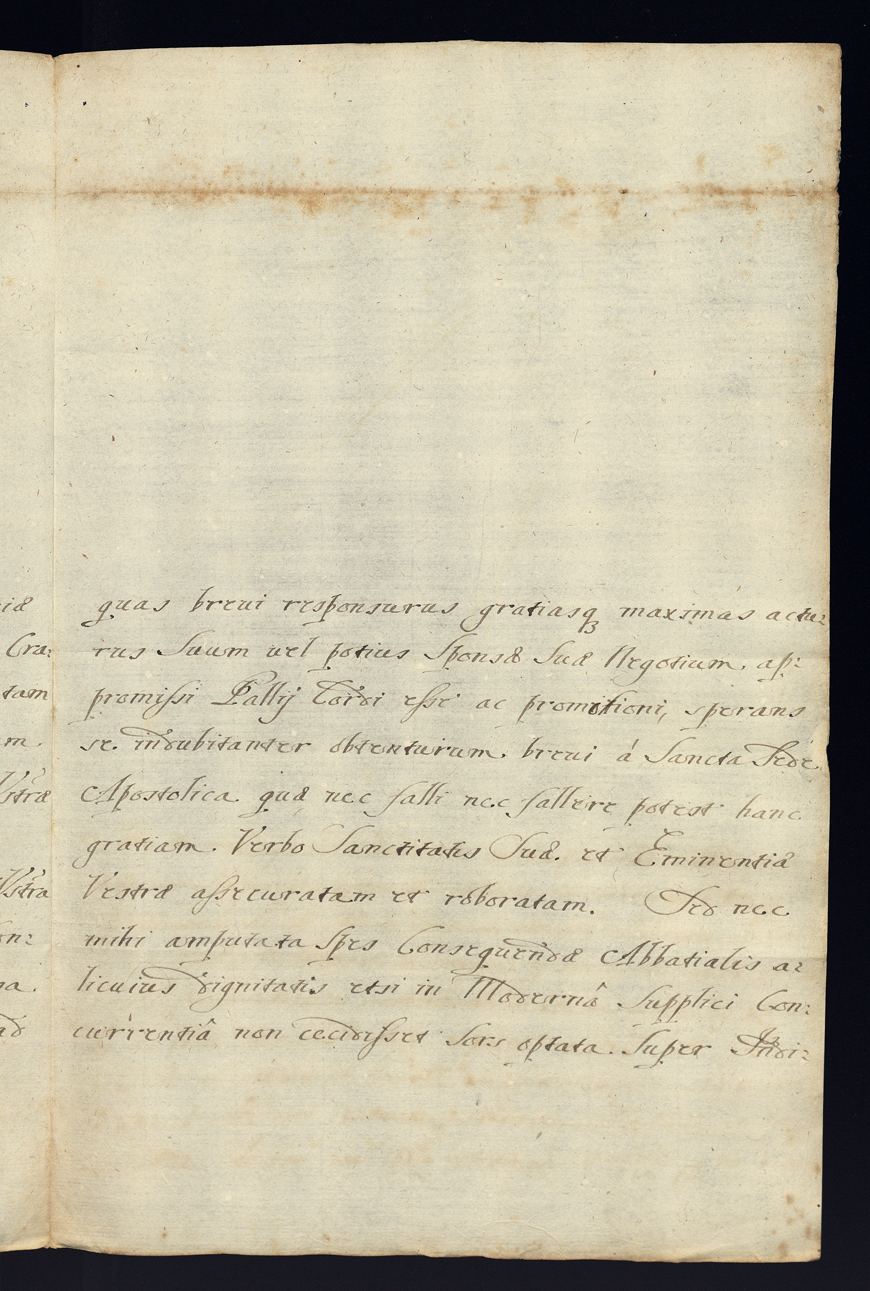 iæ
Cra:
tam
m.
Vstræ
Vstra
on:
na.
ad
quas brevi responsurus gratiasqꝫ maximas actu:
rus Suum vel potius Sponsæ Suæ Negotium, ap:
promissi Pallij esse ac promotioni, sperans
se indubitanter obtenturum brevi á Sancta Sede
Apostolica quæ nec falli nec fallere potest hanc
gratiam. Verbo Sanctitatis Suæ. et Eminentiæ
Vestræ assecuratam et roboratam. Sed nec
mihi amputata Spes Consequendæ Abbatialis a:
licuius dignitatis etsi in Modernâ Supplici Con:
currentiâ non cecidisset Sors optata. Super Indi: